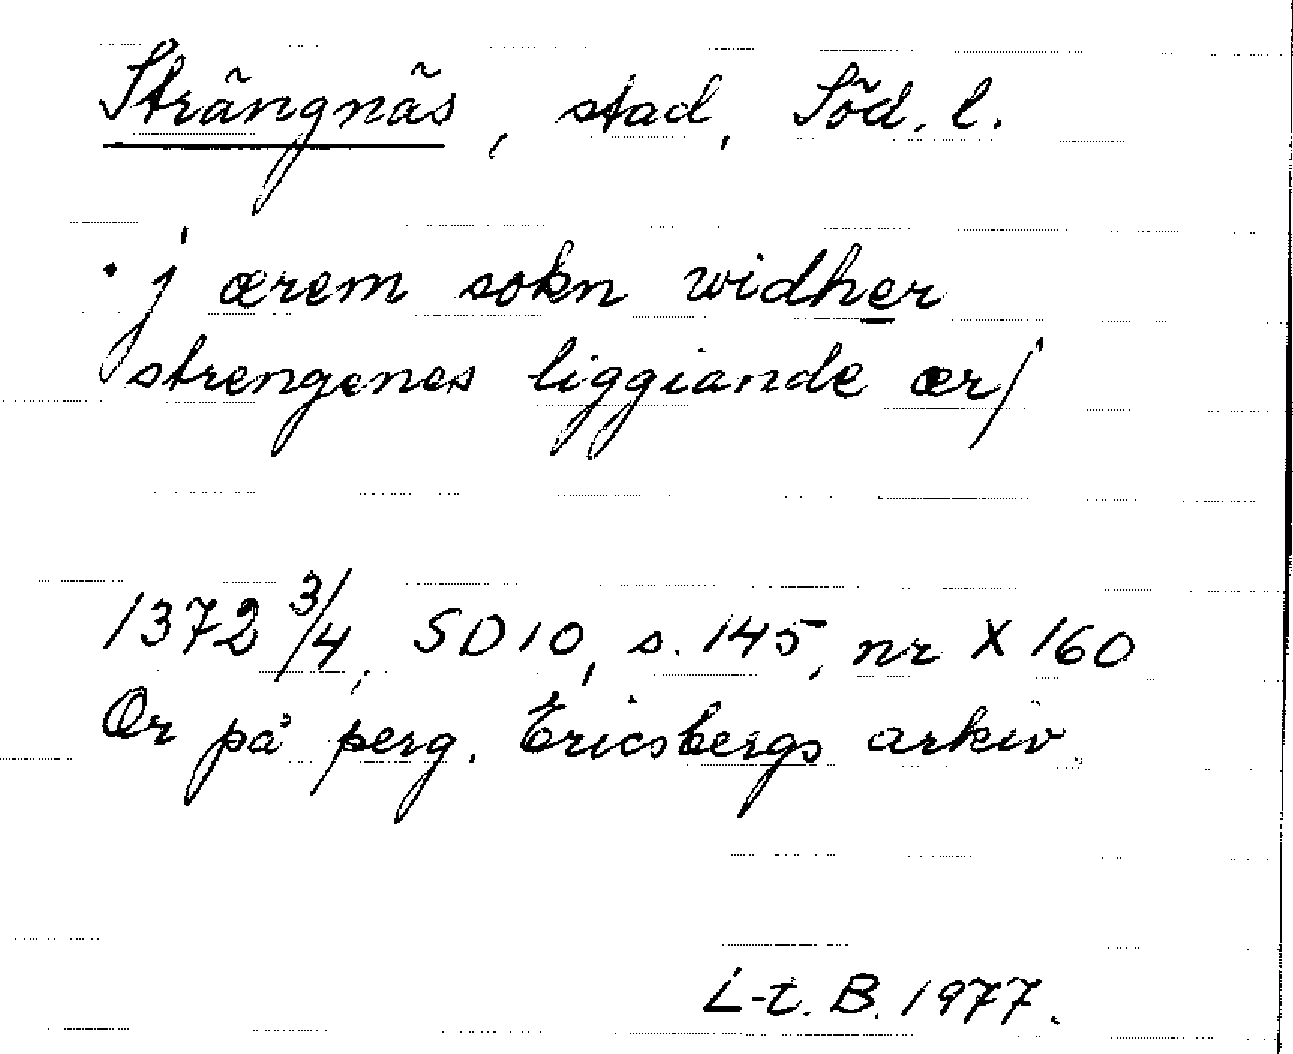 Strängnäs, stad, Söd. l.
· j ærem sokn widher
strengenes liggiande ær/
1372 3/4, SD10, s. 145, nr X 160
Or på perg. Ericsbergs arkiv.
L-t. B. 1977.